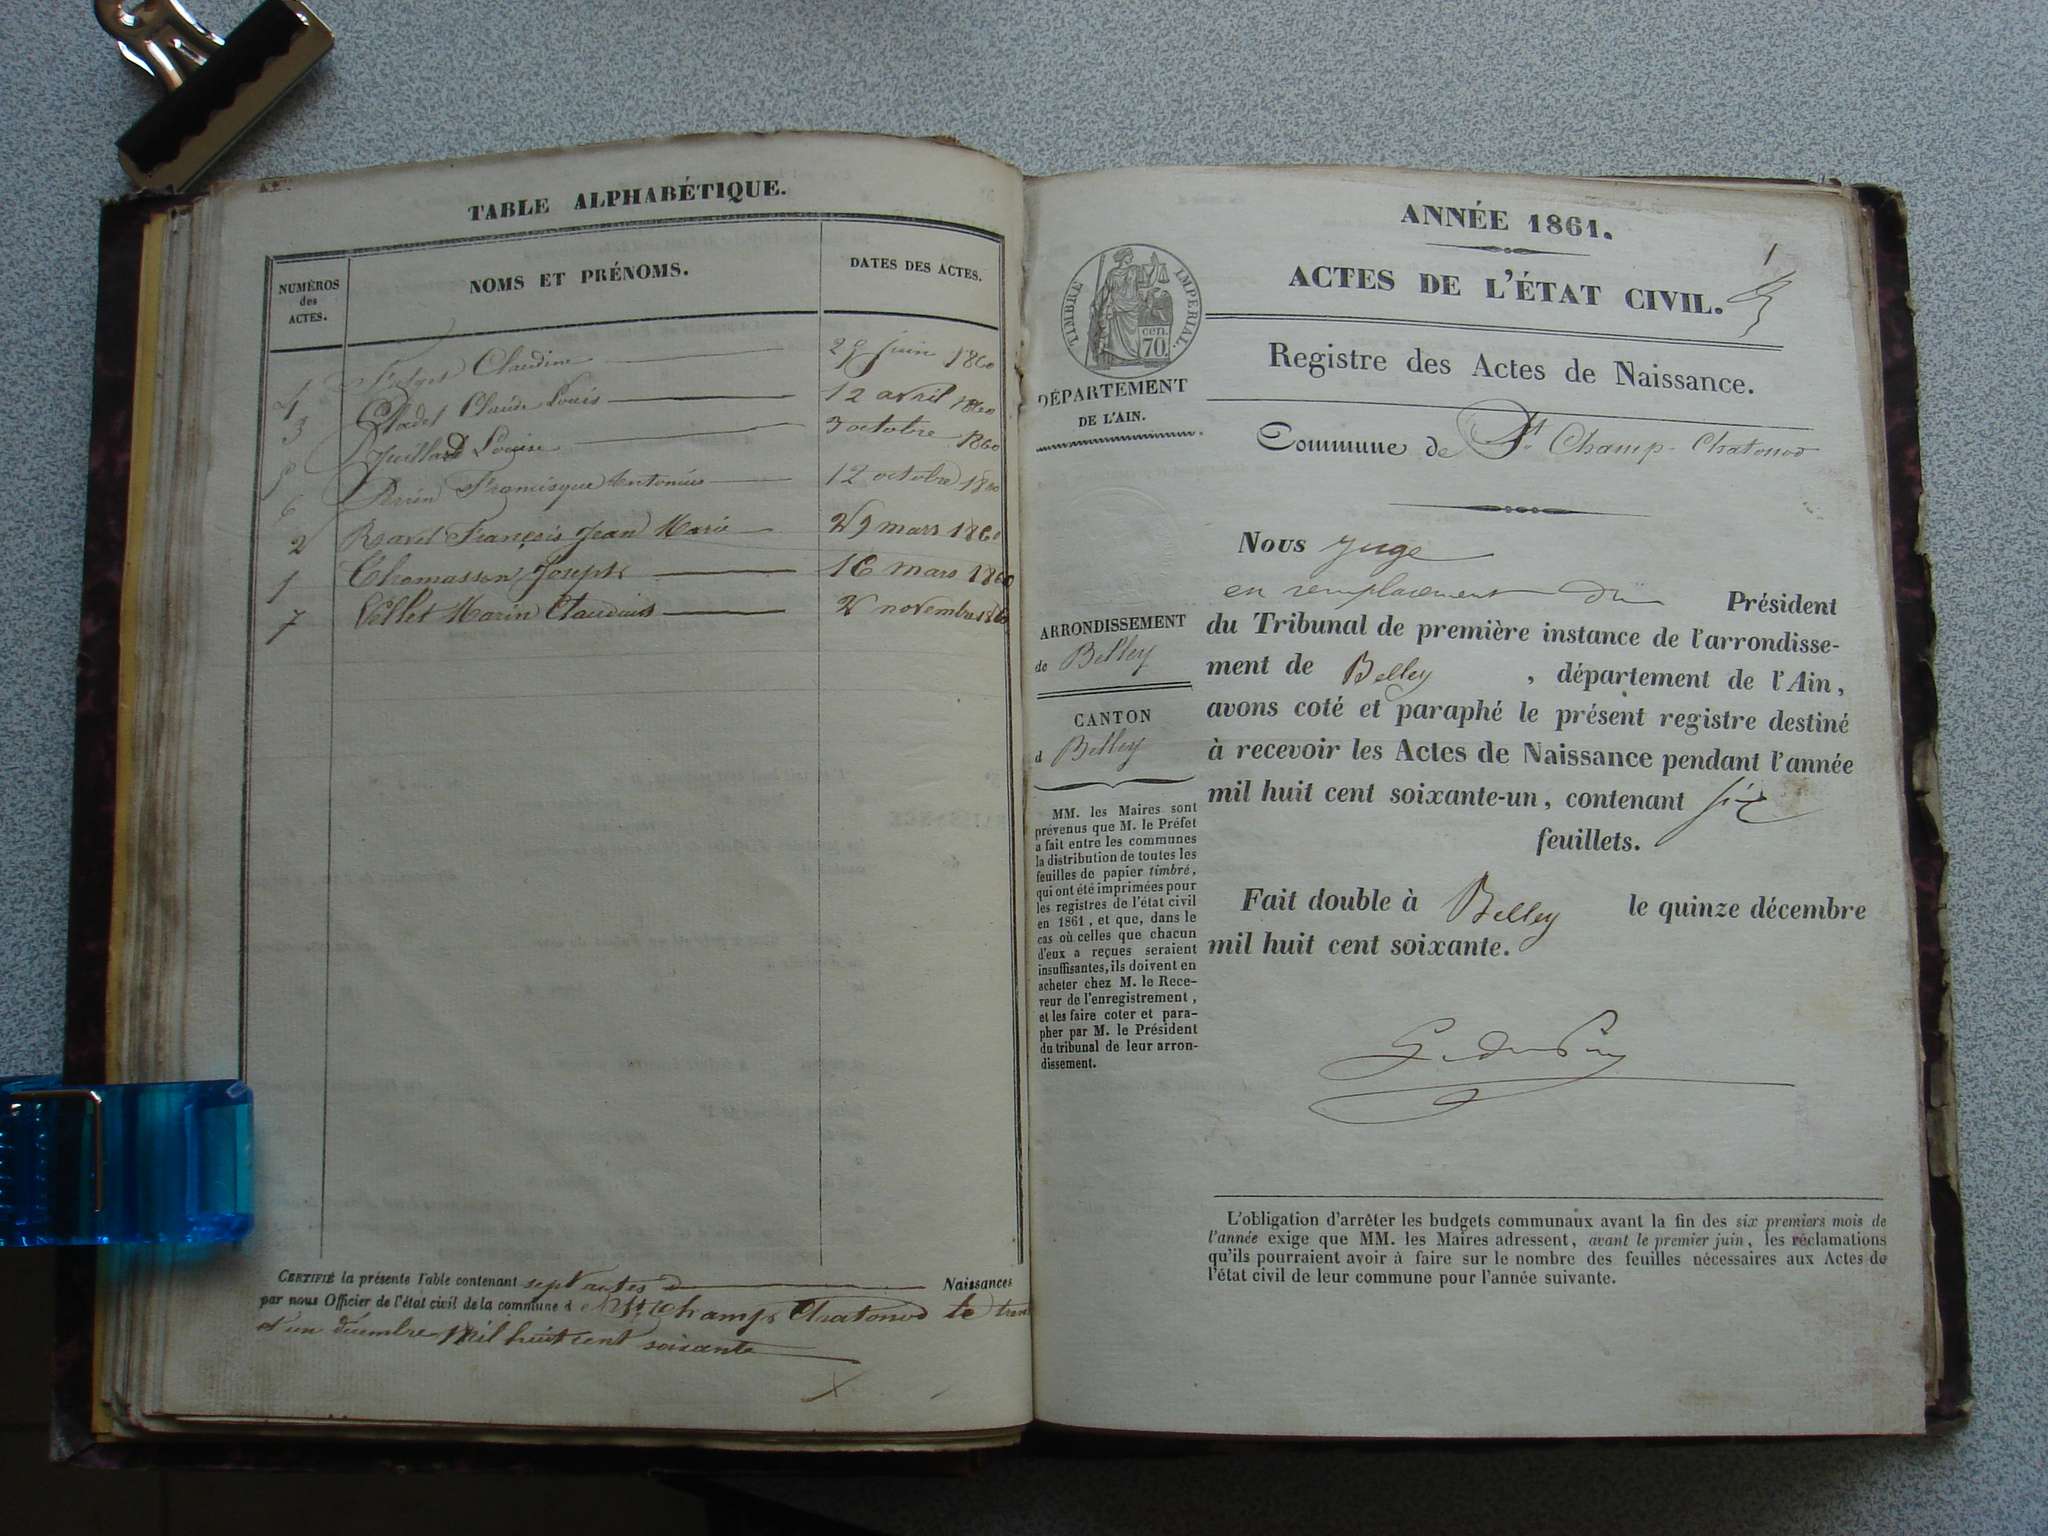 TABLE ALPHABÉTIQUE.
NUMÉROS des ACTES.
NOMS ET PRÉNOMS.
DATES DES ACTES.
4 Claudine juin 1860
3 Claude Louis 12 avril 1860
5 Juillard Louise 3 octobre 1860
6 Perrin Francisque Antonius 12 octobre 1860
2 Ravet François Jean Marie 29 mars 1860
1 Thomasson Joseph 16 mars 1860
7 Vollet Marin Claudius 2 novembre 1860
CERTIFIÉ la présente Table contenant sept actes d Naissances
par nous Officier de l'état civil de la commune de St Champ Chatonod le trente
et un décembre mil huit cent soixante
ANNÉE 1861.
1
ACTES DE L'ÉTAT CIVIL.
Registre des Actes de Naissance.
Commune de St Champ-Chatonod
TIMBRE IMPÉRIAL.
70 cen.
DÉPARTEMENT
DE L'AIN.
ARRONDISSEMENT
de Belley
CANTON
d Belley
MM. les Maires sont
prévenus que M. le Préfet
a fait entre les communes
la distribution de toutes les
feuilles de papier timbré,
qui ont été imprimées pour
les registres de l'état civil
en 1861, et que, dans le
cas où celles que chacun
d'eux a reçues seraient
insuffisantes, ils doivent en
acheter chez M. le Rece-
veur de l'enregistrement,
et les faire coter et para-
pher par M. le Président
du tribunal de leur arron-
dissement.
Nous Juge
en remplacement du Président
du Tribunal de première instance de l'arrondisse-
ment de Belley, département de l'Ain,
avons coté et paraphé le présent registre destiné
à recevoir les Actes de Naissance pendant l'année
mil huit cent soixante-un, contenant six
feuillets.
Fait double à Belley le quinze décembre
mil huit cent soixante.
L'obligation d'arrêter les budgets communaux avant la fin des six premiers mois de
l'année exige que MM. les Maires adressent, avant le premier juin, les réclamations
qu'ils pourraient avoir à faire sur le nombre des feuilles nécessaires aux Actes de
l'état civil de leur commune pour l'année suivante.